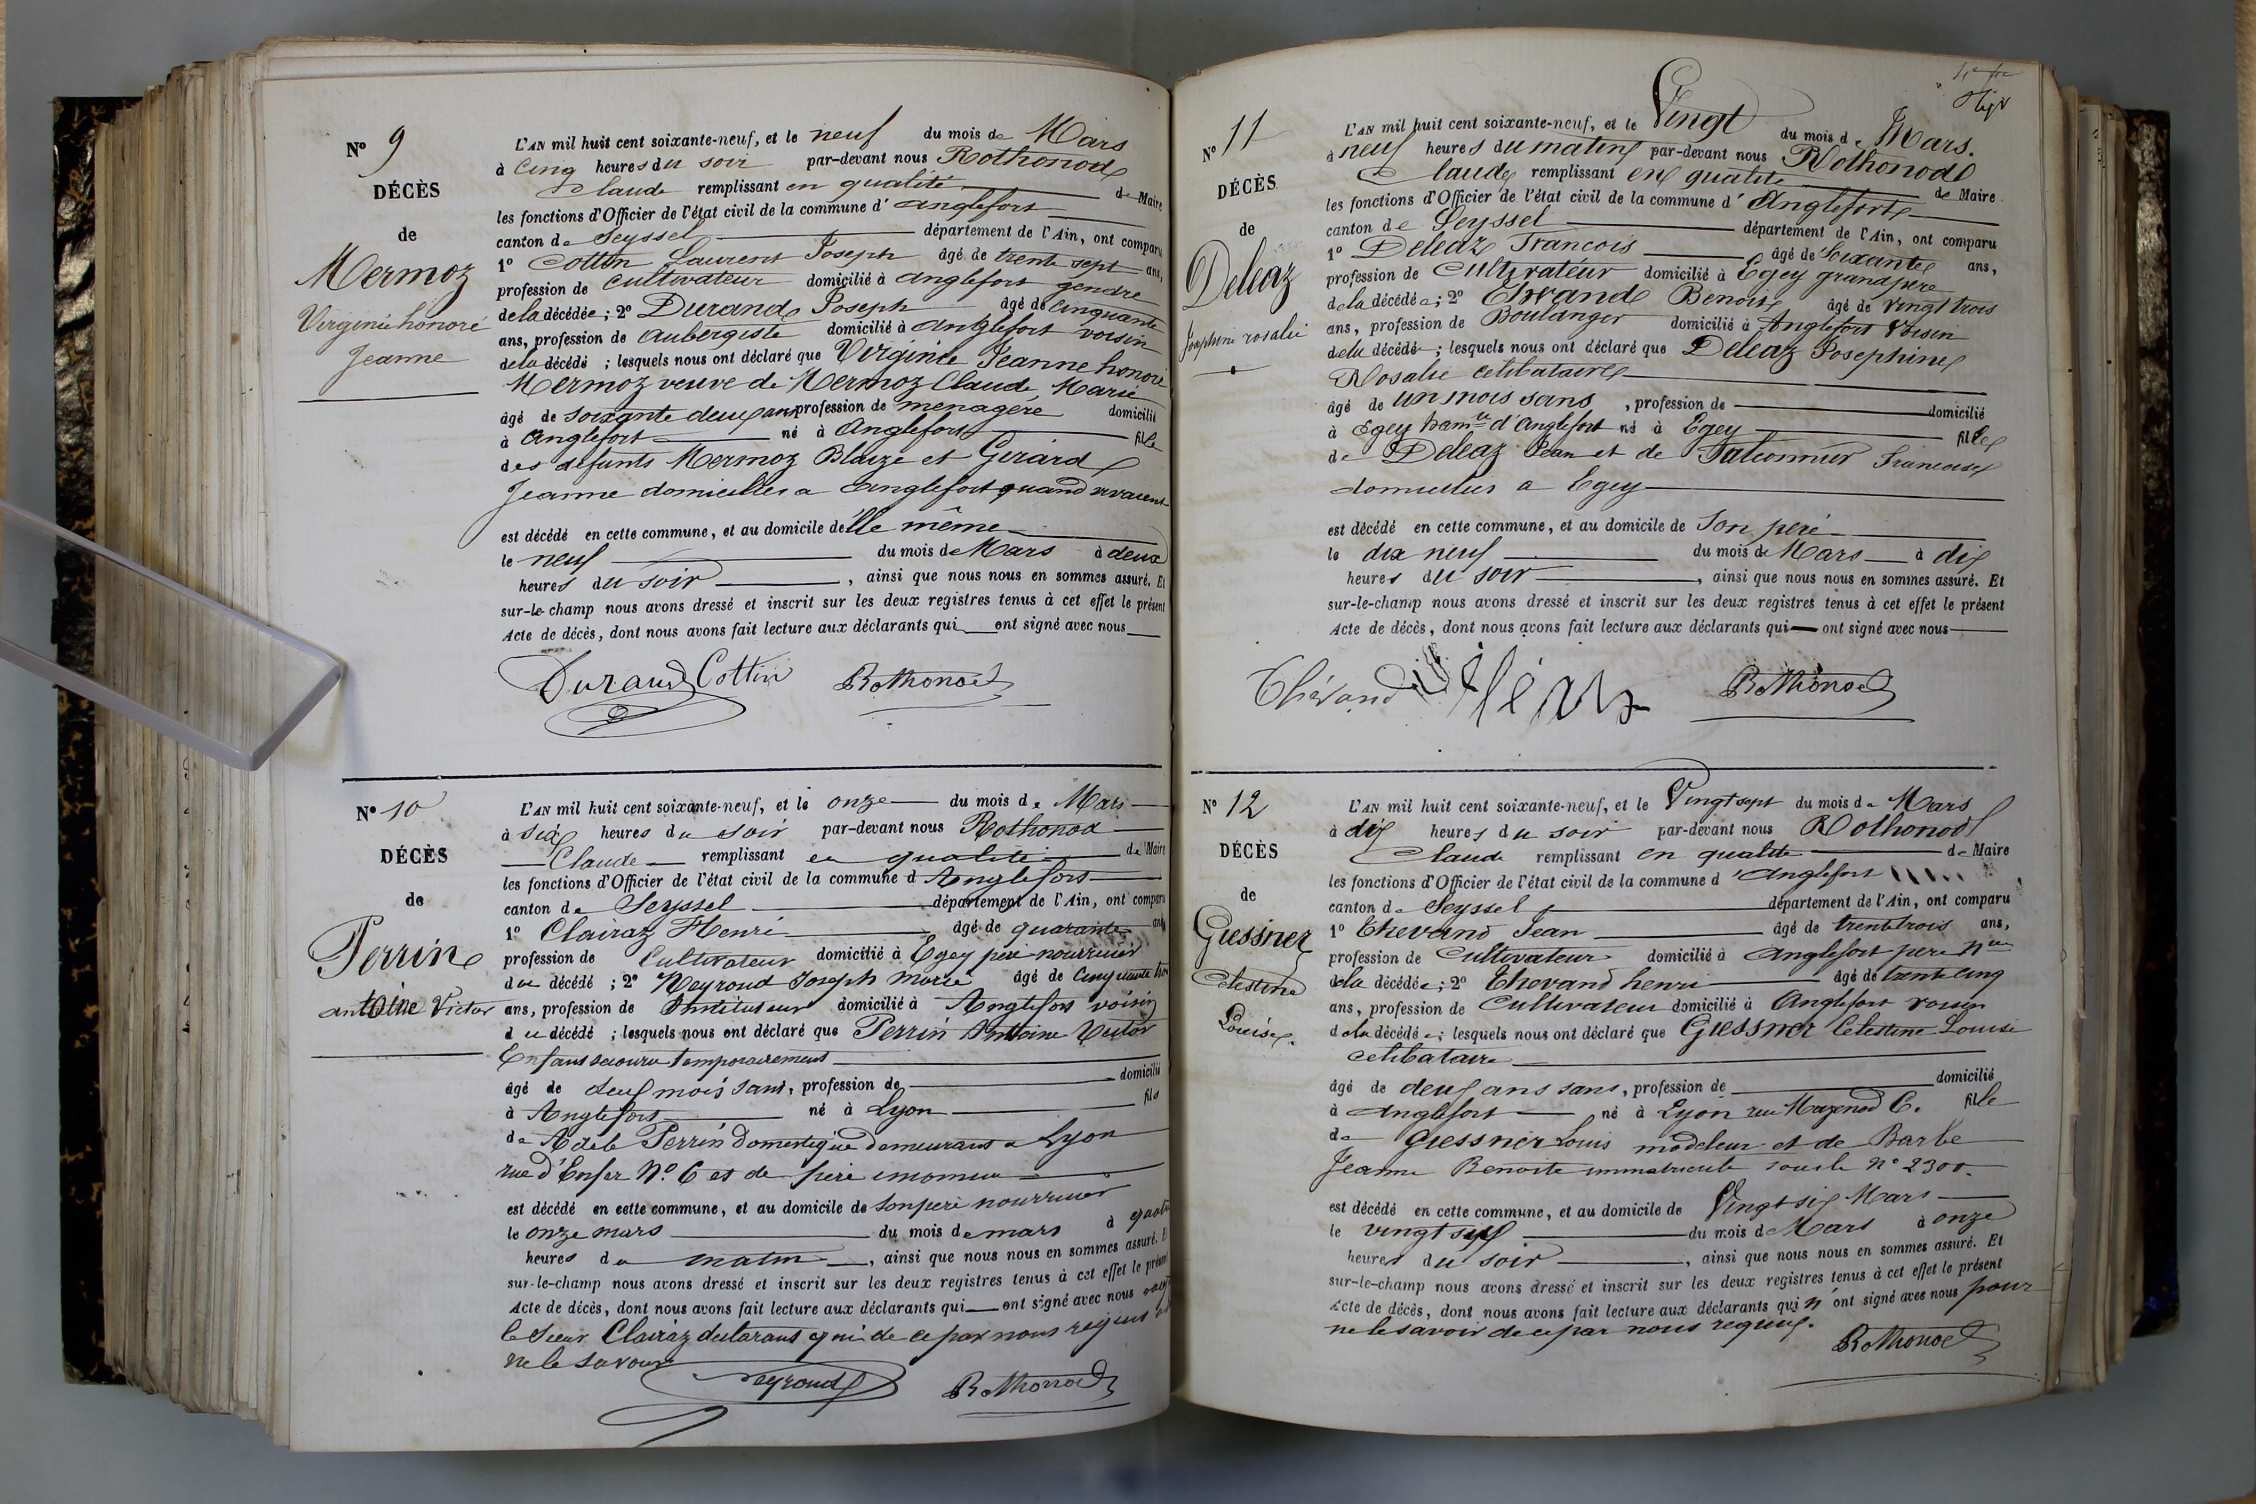 Nº 9
DÉCÈS
de
Mermoz
Virginie honoré
Jeanne
L'AN mil huit cent soixante-neuf, et le neuf du mois de Mars
à Cinq heures du soir par-devant nous Rothonod
Claude remplissant en qualité de Maire
les fonctions d'Officier de l'état civil de la commune d'anglefort
canton de Seyssel département de l'Ain, ont comparu
1º Cottin Laurent Joseph âgé de trente sept ans,
profession de cultivateur domicilié à anglefort gendre
de la décédée; 2º Durand Joseph âgé de cinquante
ans, profession de aubergiste domicilié à Anglefort voisin
de la décédé; lesquels nous ont déclaré que Virginie Jeanne honoré
Mermoz veuve de Mermoz Claude Marie
âgé de soixante deux ans profession de menagère domicilié
à Anglefort né à Anglefort fille
des défunts Mermoz Blaize et Girard
Jeanne domiciliés a Anglefort quand vivaient
est décédé en cette commune, et au domicile d'elle même
le neuf du mois de Mars à deux
heures du soir, ainsi que nous nous en sommes assuré. Et
sur-le-champ nous avons dressé et inscrit sur les deux registres tenus à cet effet le présent
Acte de décès, dont nous avons fait lecture aux déclarants qui ont signé avec nous
Durand Cottin Rothonod
Nº 10
DÉCÈS
de
Perrin
antoine Victor
L'AN mil huit cent soixante-neuf, et le onze du mois de Mars
à six heures du soir par-devant nous Rothonod
Claude remplissant en qualité de Maire
les fonctions d'Officier de l'état civil de la commune d'Anglefort
canton de Seyssel département de l'Ain, ont comparu
1º Clairaz Henri âgé de quarante ans
profession de Cultivateur domicilié à Egey père nourricier
du décédé; 2º Neyroud Joseph Marie âgé de cinquante
ans, profession de Instituteur domicilié à Anglefort voisin
du décédé; lesquels nous ont déclaré que Perrin Antoine Victor
Enfant secouru temporairement
âgé de deux mois sans, profession de domicilié
à Anglefort né à Lyon fils
de Adele Perrin Domestique demeurant a Lyon
rue d'Enfer Nº 6 et de père inconnu
est décédé en cette commune, et au domicile de son père nourricier
le onze mars du mois de mars à quatre
heures du matin, ainsi que nous nous en sommes assuré. Et
sur-le-champ nous avons dressé et inscrit sur les deux registres tenus à cet effet le présent
Acte de décès, dont nous avons fait lecture aux déclarants qui ont signé avec nous
le Sieur Clairaz declarant qui de ce par nous requis
ne le savoir
Neyroud Rothonod
Nº 11
DÉCÈS
de
Deleaz
Josephine rosalie
L'AN mil huit cent soixante-neuf, et le Vingt du mois de Mars.
à neuf heures du matin par-devant nous Rothonod
Claude remplissant en qualité de Maire
les fonctions d'Officier de l'état civil de la commune d'Anglefort
canton de Seyssel département de l'Ain, ont comparu
1º Deleaz Francois âgé de Soixante ans,
profession de Cultivatéur domicilié à Egey grand père
de la décédée; 2º Benoit âgé de vingt trois
ans, profession de Boulanger domicilié à Anglefort Voisin
de la décédé; lesquels nous ont déclaré que Deleaz Josephine
Rosalie celibataire
âgé de un mois sans, profession de domicilié
à Egey ham.au d'Anglefort né à Egey fille
de Deleaz Jean et de Falconnier Francoise
domicilies a Egey
est décédé en cette commune, et au domicile de son père
le dix neuf du mois de Mars à dix
heures du soir, ainsi que nous nous en sommes assuré. Et
sur-le-champ nous avons dressé et inscrit sur les deux registres tenus à cet effet le présent
Acte de décès, dont nous avons fait lecture aux déclarants qui ont signé avec nous
Thévand Rothonod
Nº 12
DÉCÈS
de
Giessner
Celestine
Louise.
L'AN mil huit cent soixante-neuf, et le Vingt sept du mois de Mars
à dix heures du soir par-devant nous Rothonod
Claude remplissant en qualité de Maire
les fonctions d'Officier de l'état civil de la commune d'Anglefort
canton de Seyssel département de l'Ain, ont comparu
1º Thevand Jean âgé de trente trois ans,
profession de Cultivateur domicilié à Anglefort père
de la décédée; 2º Thevand henri âgé de trente cinq
ans, profession de Cultivateur domicilié à Anglefort voisin
de la décédée; lesquels nous ont déclaré que Giessner Celestine Louise
celibataire
âgé de deux ans sans, profession de domicilié
à Anglefort né à Lyon rue Mazenod 6. fille
de Giessner Louis modeleur et de Barbe
Jeanne Benoite immatricule sous le Nº 2300.
est décédé en cette commune, et au domicile de Vingt six Mars
le vingt six du mois de Mars à onze
heures du soir, ainsi que nous nous en sommes assuré. Et
sur-le-champ nous avons dressé et inscrit sur les deux registres tenus à cet effet le présent
Acte de décès, dont nous avons fait lecture aux déclarants qui n'ont signé avec nous pour
ne le savoir de ce par nous requis.
Rothonod